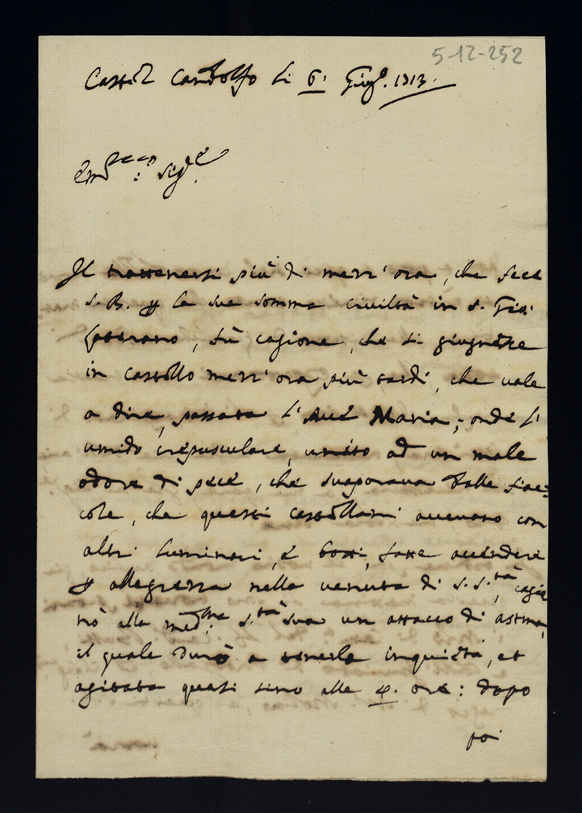 5-12-252
Castel Gandolfo li 6: Giug.º 1713.
Em.mo: Sig.re
Il trattenersi più di mezz'ora, che fece
S. B. p la sua somma civiltà in S. Gio:
Laterano, fù cagione, che si giugnesse
in Castello mezz'ora più tardi, che vale
a dire, passata l'Avé Maria; onde l'
umido crepusculare, unito ad un male
odore di pece, che svaporava dalle fiac=
cole, che questi Castellani avevano con
altri luminari, è botti, fatte accendere
p allegrezza nella venuta di S. S.tà, cagio
nò alla med.ma S.tà sua un attacco di astma,
il quale durò a tenerla inquieta, et
agitata quasi sino alle 4. ore: dopo
poi